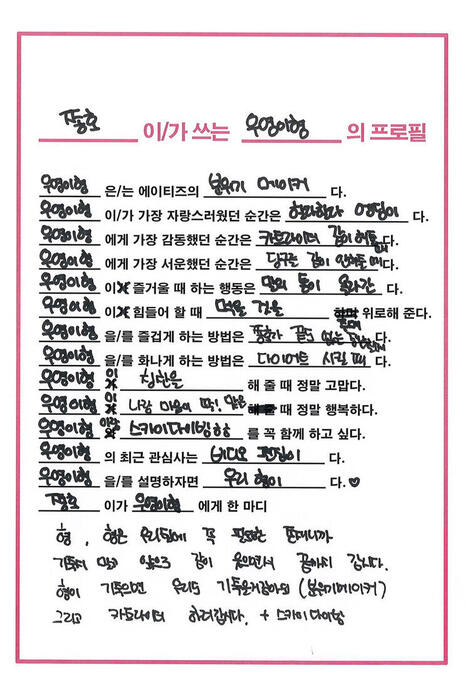 종호 이/가 쓰는 우영이형 의 프로필
우영이형 은/는 에이티즈의 분위기 메이커 다.
우영이형 이/가 가장 자랑스러웠던 순간은 다.
우영이형 에게 가장 감동했던 순간은 카트라이더 같이 해줄 때 다.
우영이형 에게 가장 서운했던 순간은 당구 같이 안해줄 때 다.
우영이형 이 즐거울 때 하는 행동은 톤이 올라간 다.
우영이형 이 힘들어 할 때 먹을 것을 위로해 준다.
우영이형 을/를 즐겁게 하는 방법은 종호가 끝도 없는 다.
우영이형 을/를 화나게 하는 방법은 다이어트 시킬 때 다.
우영이형 이 칭찬을 해 줄 때 정말 고맙다.
우영이형 이 나랑 마음이 딱! 맞을 때 정말 행복하다.
우영이형 이랑 스카이다이빙 을 꼭 함께 하고 싶다.
우영이형 의 최근 관심사는 비디오 편집이 다.
우영이형 을/를 설명하자면 우리 형이 다.
종호 이가 우영이형 에게 한 마디
형, 형은 우리팀에 꼭 필요한 존재니까
기죽지 말고 앞으로 같이 웃으면서 끝까지 갑시다.
형이 기죽으면 우리도 기죽은거 (분위기메이커)
그리고 카트라이더 하러갑시다. + 스카이다이빙